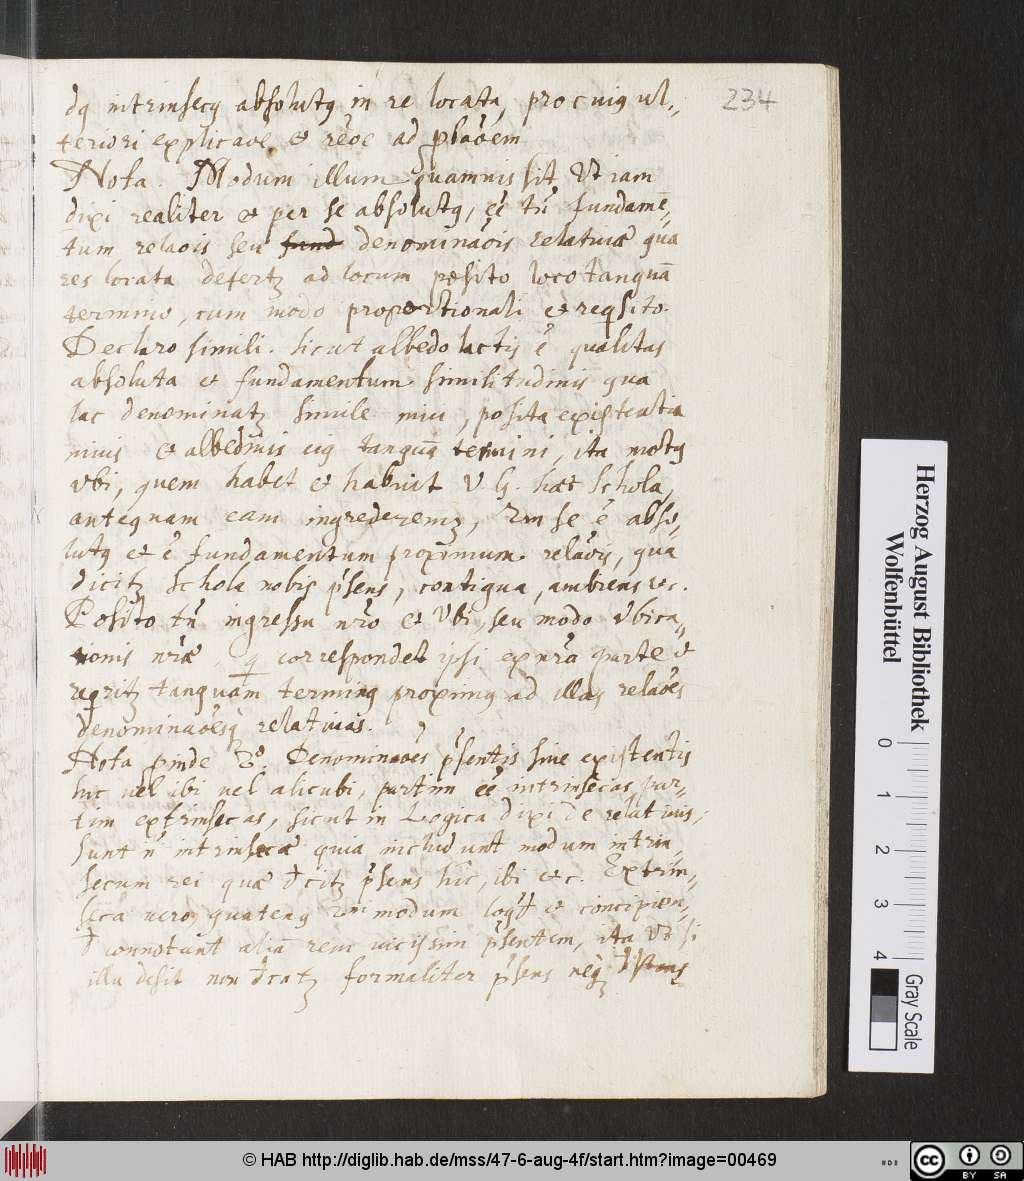 dq intrinsecq absolutq in re locata, pro cuiq ul-
teriori explicaoe, et reoe ad
Nota. Modum illum quamnis sit, Ut iam
dixi realiter et per se absolutq, ee tn fundamē-
tum relaois seu fund denominaois relatiuæ qua
res locata defertz ad locum posito loco tanquā
termino, cum modo proportionali et reqsito.
Declaro simili. sicut albedo lactis ē qualitas
absoluta et fundamentum similitudinis qua
lac denominatz simile niui, posita existentia
niuis et albedinis eiq tanquā termini, ita motq
ubi, quem habet et habuit V.G. hæc Schola,
antequam eam ingrederemz, in se ē abso-
lutq et ē fundamentum proximum relaois, qua
dicitz Schola nobis psens, contigua, ambiens &c.
Posito tn ingressu nro et Ubi, seu modo Ubica-
tionis nræ, q correspondet ipsi ex nra parte et
reqritz tanquam terminq proximq ad illas relaoes
denominaoesq relatiuas.
Nota pinde 2o. Denominaoes psentis siue existentis
hic uel ibi uel alicubi, partim ee intrinsecas, par-
tim extrinsecas, sicut in Logica dixi de relatiuis,
Sunt n intrinsecæ quia includunt modum intrin-
secum rei quæ dcitz psens hic, ibi &c. Extrin-
seca uero, quatenq modum et concipien-
d connotant aliā rem uicissim psentem, ita Ut si
illa desit non dcatz formaliter psens neqz
234
Herzog August Bibliothek
Wolfenbüttel
0
1
2
3
4
Gray Scale
© HAB http://diglib.hab.de/mss/47-6-aug-4f/start.htm?image=00469
cc
BY
SA